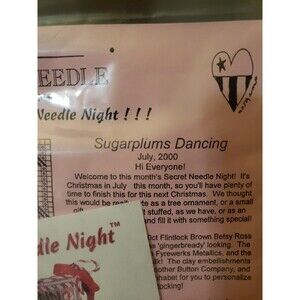 EEDLE
Needle Night ! ! !
Sugarplums Dancing
July, 2000
Hi Everyone!
Welcome to this month's Secret Needle Night! It's
Christmas in July this month, so you'll have plenty of
time to finish this for this next Christmas. We thought
this would be really cute as a tree ornament, or a small
stuffed, as we have, or as an
and fill it with something special!
Flintlock Brown Betsy Ross
'gingerbready' looking. The
Fyrewerks Metallics, and the
ilk! The clay embellishments
nother Button Company, and
lphabet for you to personalize
stocking!
dle Night™